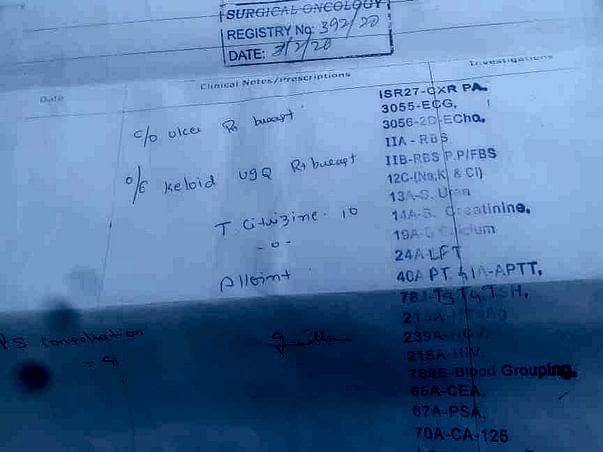 SURGICAL ONCOLOGY
REGISTRY No: 392/20
DATE: 3/2/20
Date
Clinical Notes/Prescriptions
Investigations
ISR27-CXR PA.
3055-ECG,
c/o ulcer Rt breast
3056-2D-ECho,
IIA - RBS
IIB-RBS P.P/FBS
o/E Keloid UOQ Rt breast
12C-(Na,K & Cl)
13A-S. Urea
T. Citrizine 10
14A-S. Creatinine,
-0-
19A-S Calcium
24A-LFT
Alloint
40A PT & IA-APTT,
78J-T3 T4, TSH,
239A-HCV.
PS Consultation
215A-HIV.
-8
769E-Blood Grouping,
66A-CEA,
67A-PSA,
70A-CA-125